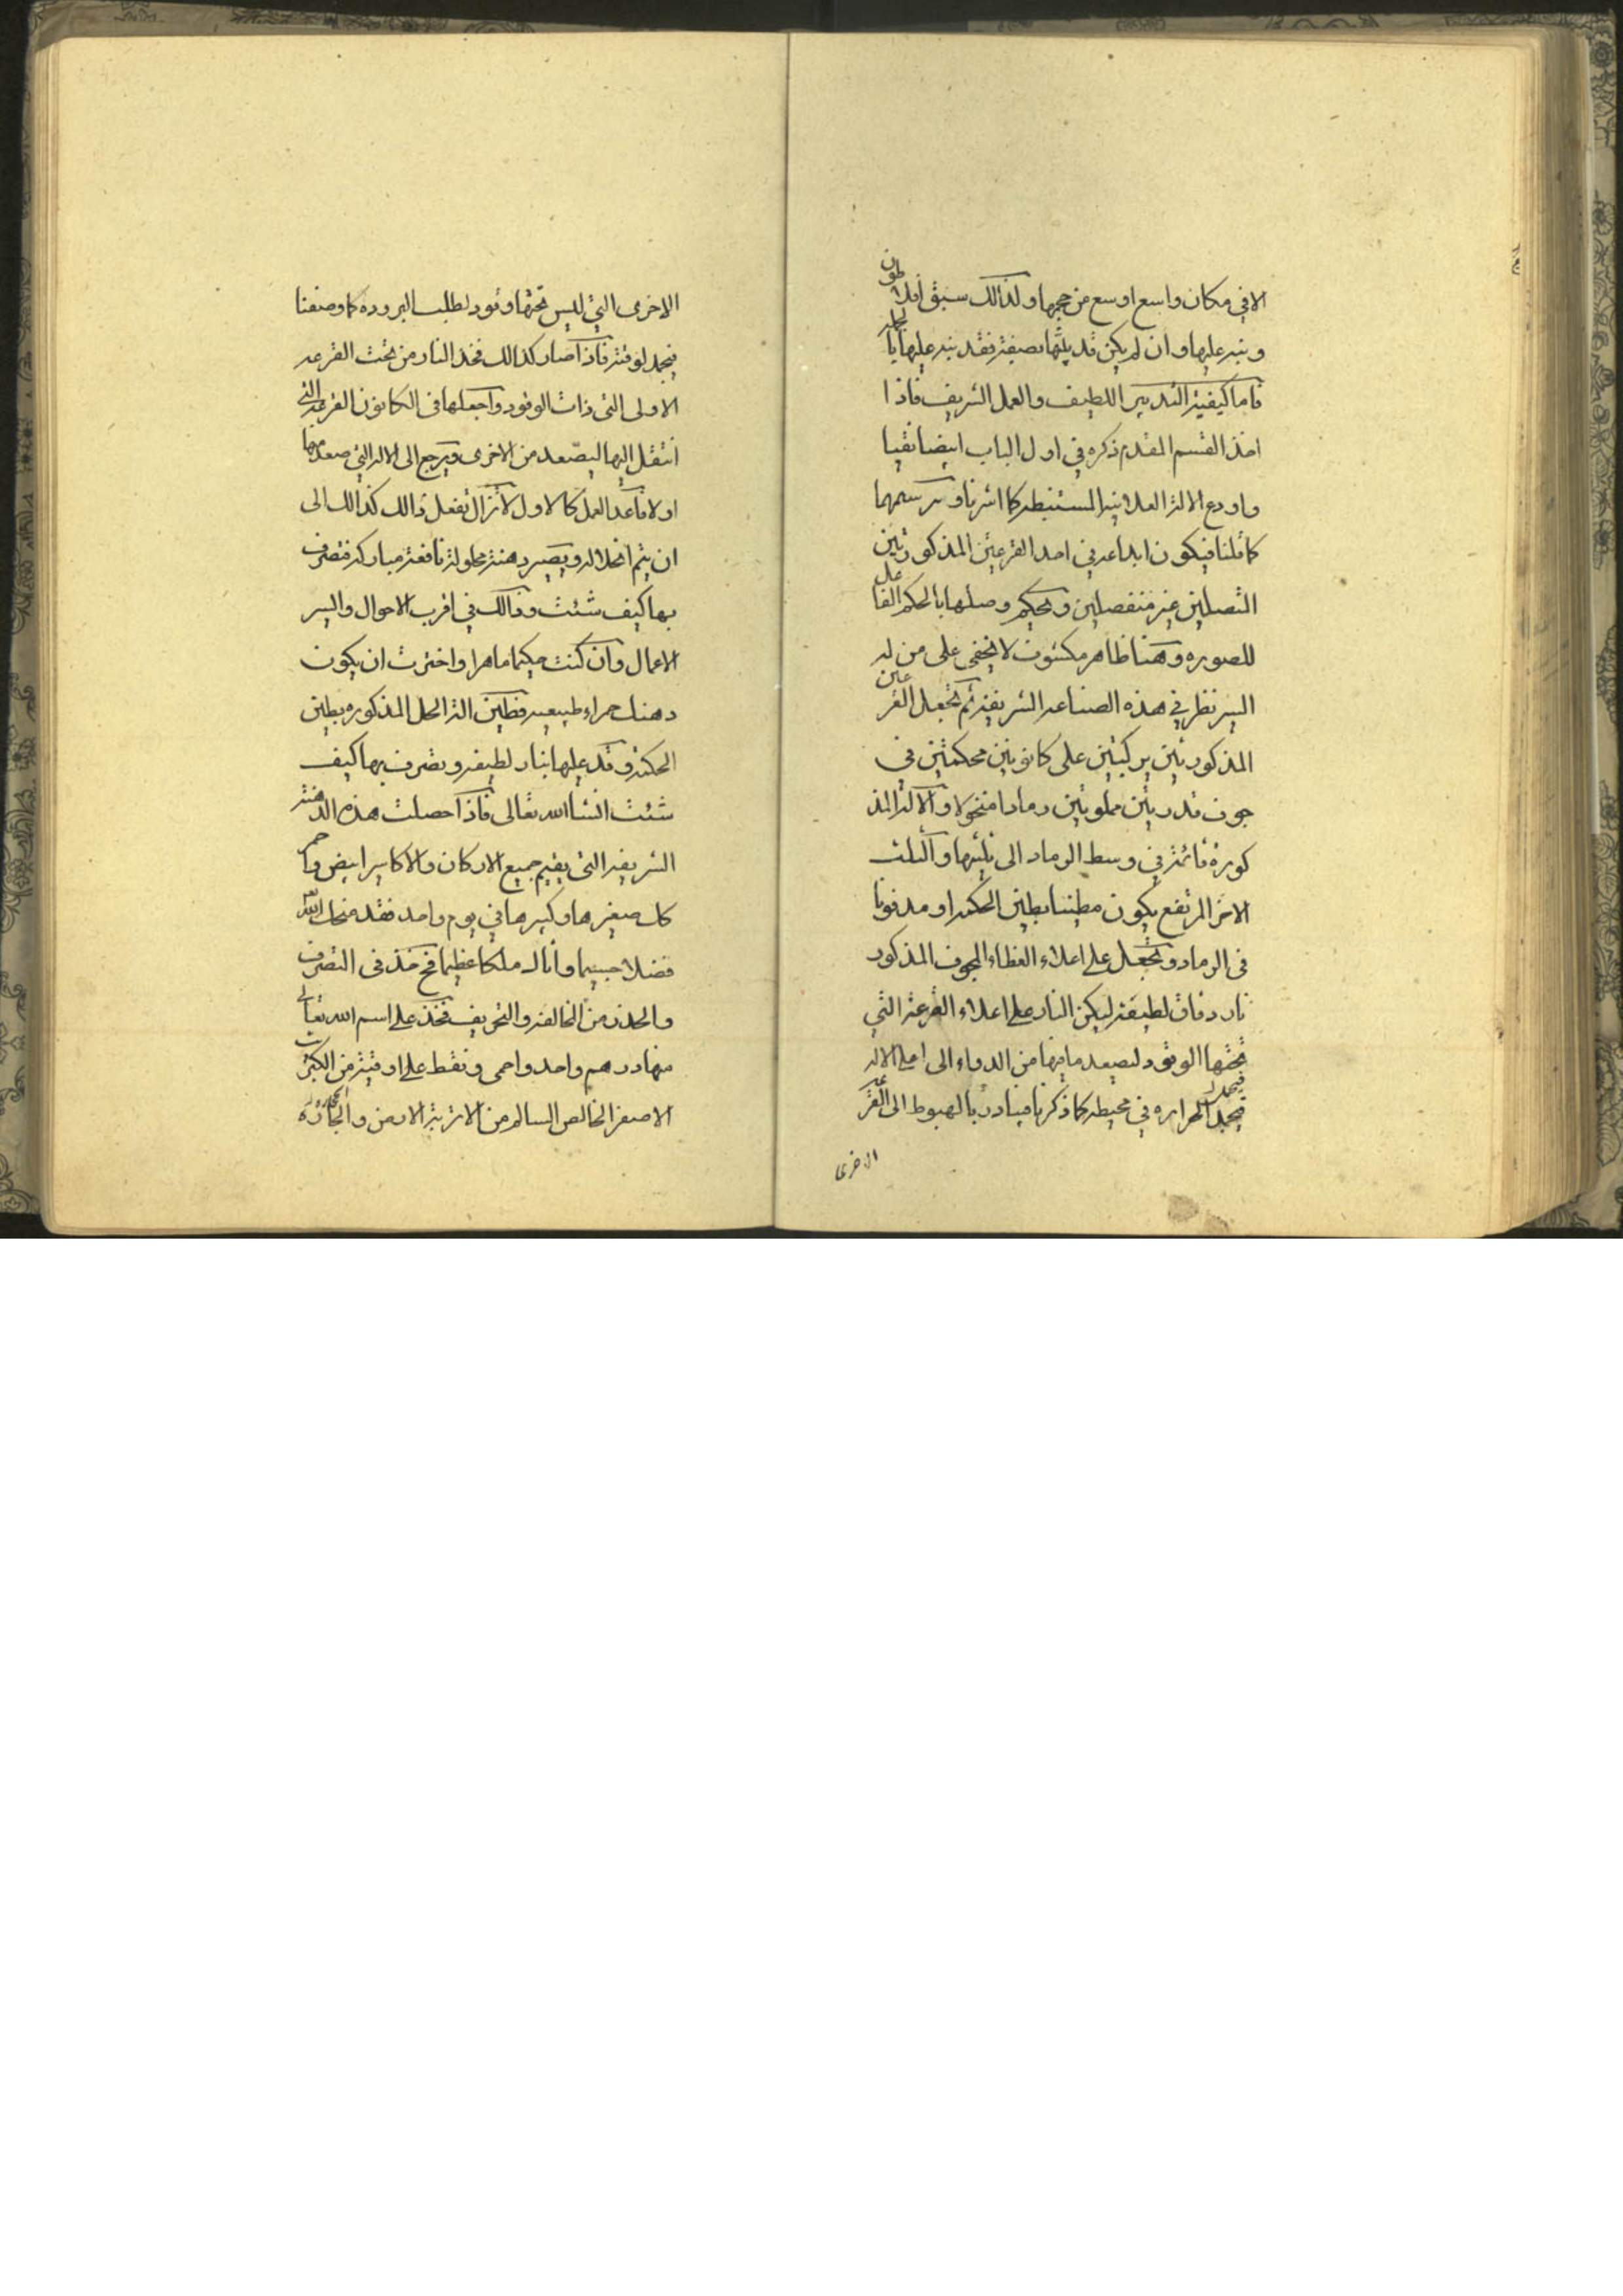 الا في مكان واسع اوسع من حجمها ولذالك سبق افلاطون
ونبه عليها وان لم يكن قد بصيغة فقد نبه عليها
فاما كيفية التدبير اللطيف والعمل الشريف فاذا
اخذ القسم المقدم ذكره في اول الباب ايضا نقيا
واودع الالة المستنبطه كما اشرنا وسر سمهما
كما قلنا فيكون ابداعه في احد القرعتين المذكورتين
المتصلين غير منفصلين ويحكم وصلها بالحكم الفاعل
للصوره وهنا ظاهر مكشوف لا يخفى على من له
ايسر نظر في هذه الصناعه الشريفة ثم تجعل القرعتين
المذكورتين مركبتين على كانونين محكمتين في
جوف قدرتين مملوتين رمادا منخولا والالة المذ
كورة قائمة في وسط الرماد الى ثلثيها والثلث
الاخر المرتفع يكون مطينا بطين الحكمه او مدفونا
في الرماد وتجعل على اعلاء الغطاء المجوف المذكور
نار دقاق لطيفة ليكن النار على اعلاء القرعة التي
تحتها الوقود ليصعد ما فيها من الدواء الى اعلى الاله
فيجد الحراره في محيطه كما ذكرنا فيبادر بالهبوط الى القرعة
الاخرى
الاخرى التي ليس تحتها وقود لطلب البروده كما وصفنا
فيجمد لوقته فاذا صار كذالك فخذ النار من تحت القرعه
الاولى التي ذات الوقود واجعلها في الكانون القرعة التي
انتقل اليها ليصعد من الاخرى ويرجع الى الاله التي صعد منها
اولا فاعد العمل كالاول لا تزال تفعل ذالك كذالك الى
ان يتم انحلاله ويصير دهنة محلولة نافعة مباركة فتصرف
بها كيف شئت وذالك في اقرب الاحوال وايسر
الاعمال وان كنت حكيما ماهرا واخترت ان يكون
دهنك حمراء طبيعيه فطين الة الحل المذكوره بطين
الحكمة وقد عليها بنار لطيفه وتصرف بها كيف
شئت انشا الله تعالى فاذا حصلت هذه الدهنة
الشريفه التي يقيم جميع الاركان والاكاسير ابيض واحمر
كل صغيرها وكبيرها في يوم واحد فقد منحك الله
فضلا جسيما وانالك ملكا عظيما فخذ في التصرف
والحذر من المخالفة والتحريف فخذ على اسم الله تعالى
منها درهم واحد واحمى ونقط على اوقية من الكبريت
الاصفر الخالص السالم من الاتربة الارض والحجارة